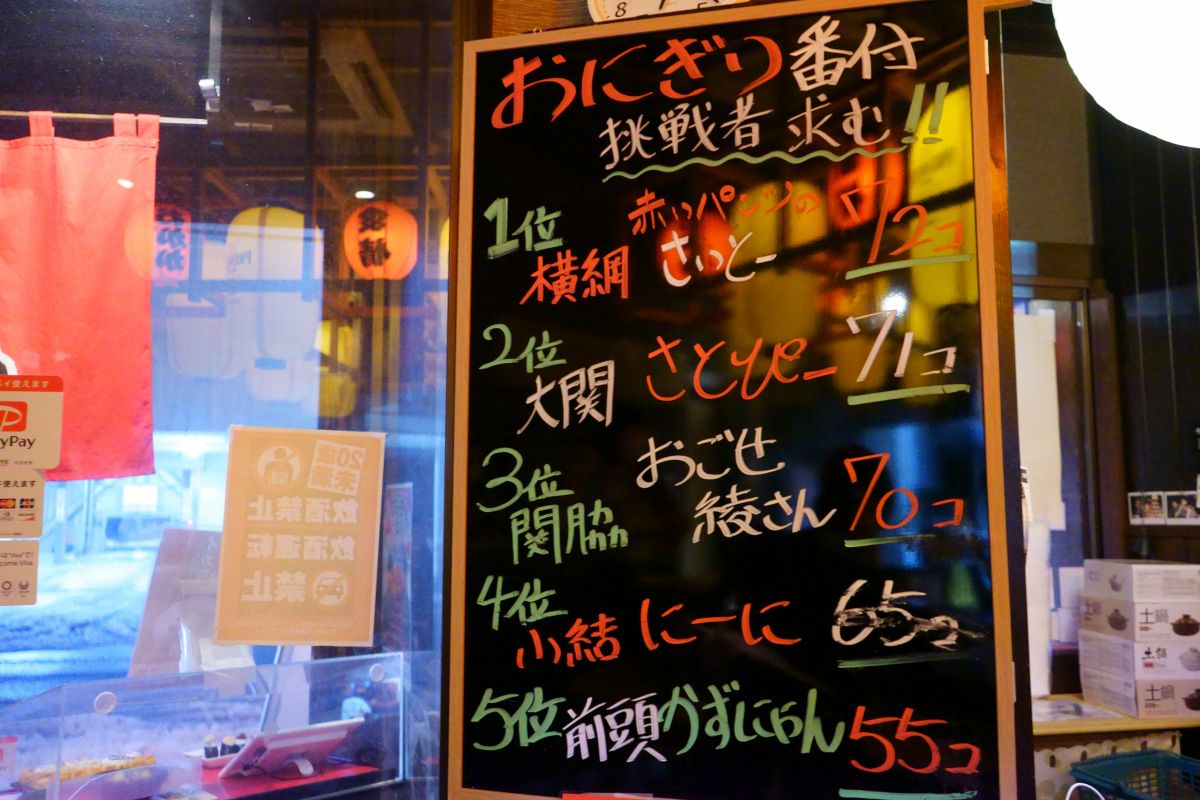 おにぎり番付
挑戦者 求む!!
1位
横綱
赤いパンツの
さいとー
72コ
2位
大関
さとぴー
71コ
3位
関脇
おごせ
綾さん
70コ
4位
小結
にーに
65コ
5位
前頭
かずにゃん
55コ
使えます
yPay
使えます
20歳
未満
飲酒禁止
飲酒運転
禁止
土鍋
土鍋
土鍋
8